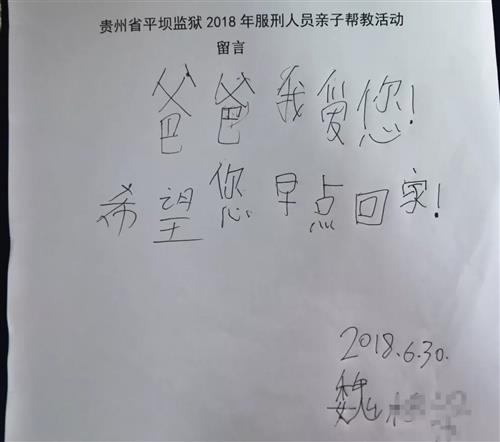 贵州省平坝监狱 2018 年服刑人员亲子帮教活动
留言
爸爸我爱您!
希望您早点回家!
2018.6.30.
魏